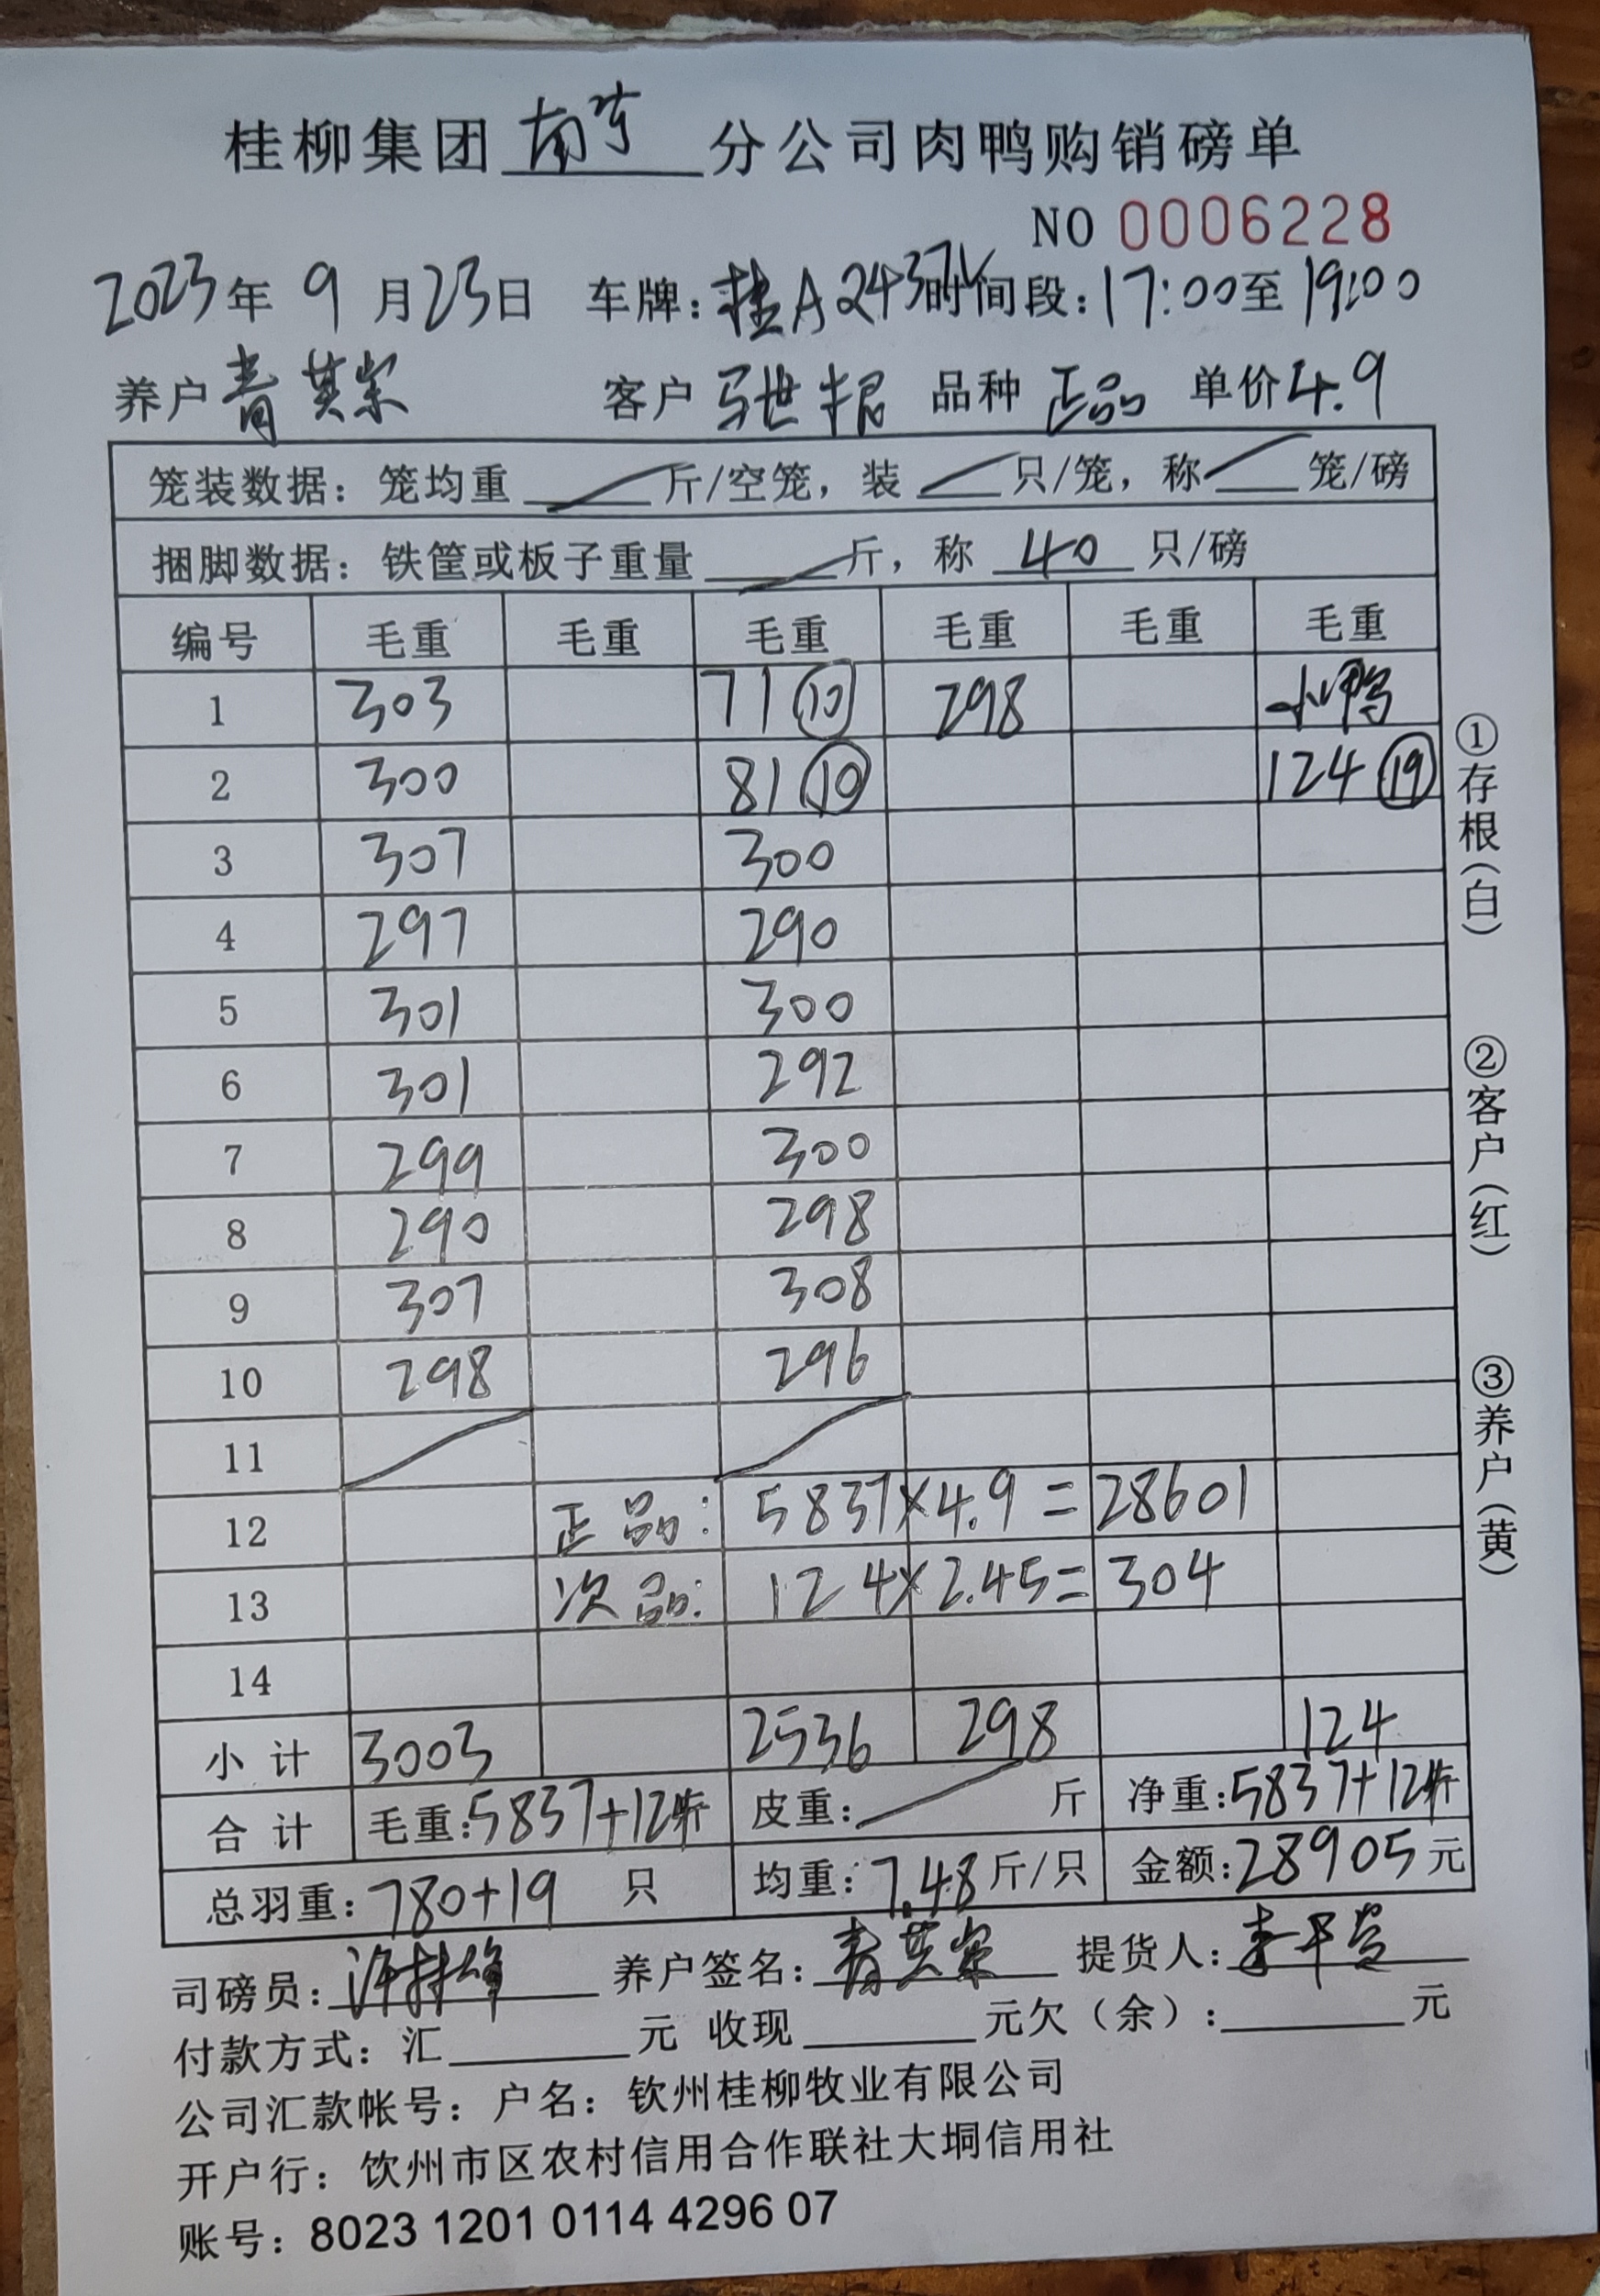 桂柳集团南宁分公司肉鸭购销磅单
NO 0006228
2023年 9 月 23日 车牌：桂A2437 时间段：17:00至 19:00
养户 青其宗 客户 马世 品种 正品 单价 4.9
笼装数据：笼均重 / 斤/空笼，装 / 只/笼，称 / 笼/磅
捆脚数据：铁筐或板子重量 / 斤，称 40 只/磅
编号 毛重 毛重 毛重 毛重 毛重 毛重
1 303 71 ⑩ 298 小鸭
2 300 81 ⑩ 124 ⑲
3 307 300
4 297 290
5 301 300
6 301 292
7 299 300
8 290 298
9 307 308
10 298 296
11 / /
12 正品： 5837×4.9=28601
13 次品： 124×2.45=304
14
小 计 3003 2536 298 124
合 计 毛重：5837+124斤 皮重： / 斤 净重：5837+124斤
总羽重：780+19 只 均重：7.48斤/只 金额：28905元
司磅员：许 养户签名：青其宗 提货人：李
付款方式：汇 元 收现 元欠（余）： 元
公司汇款帐号：户名：钦州桂柳牧业有限公司
开户行：钦州市区农村信用合作联社大垌信用社
账号：8023 1201 0114 4296 07
①存根（白）
②客户（红）
③养户（黄）